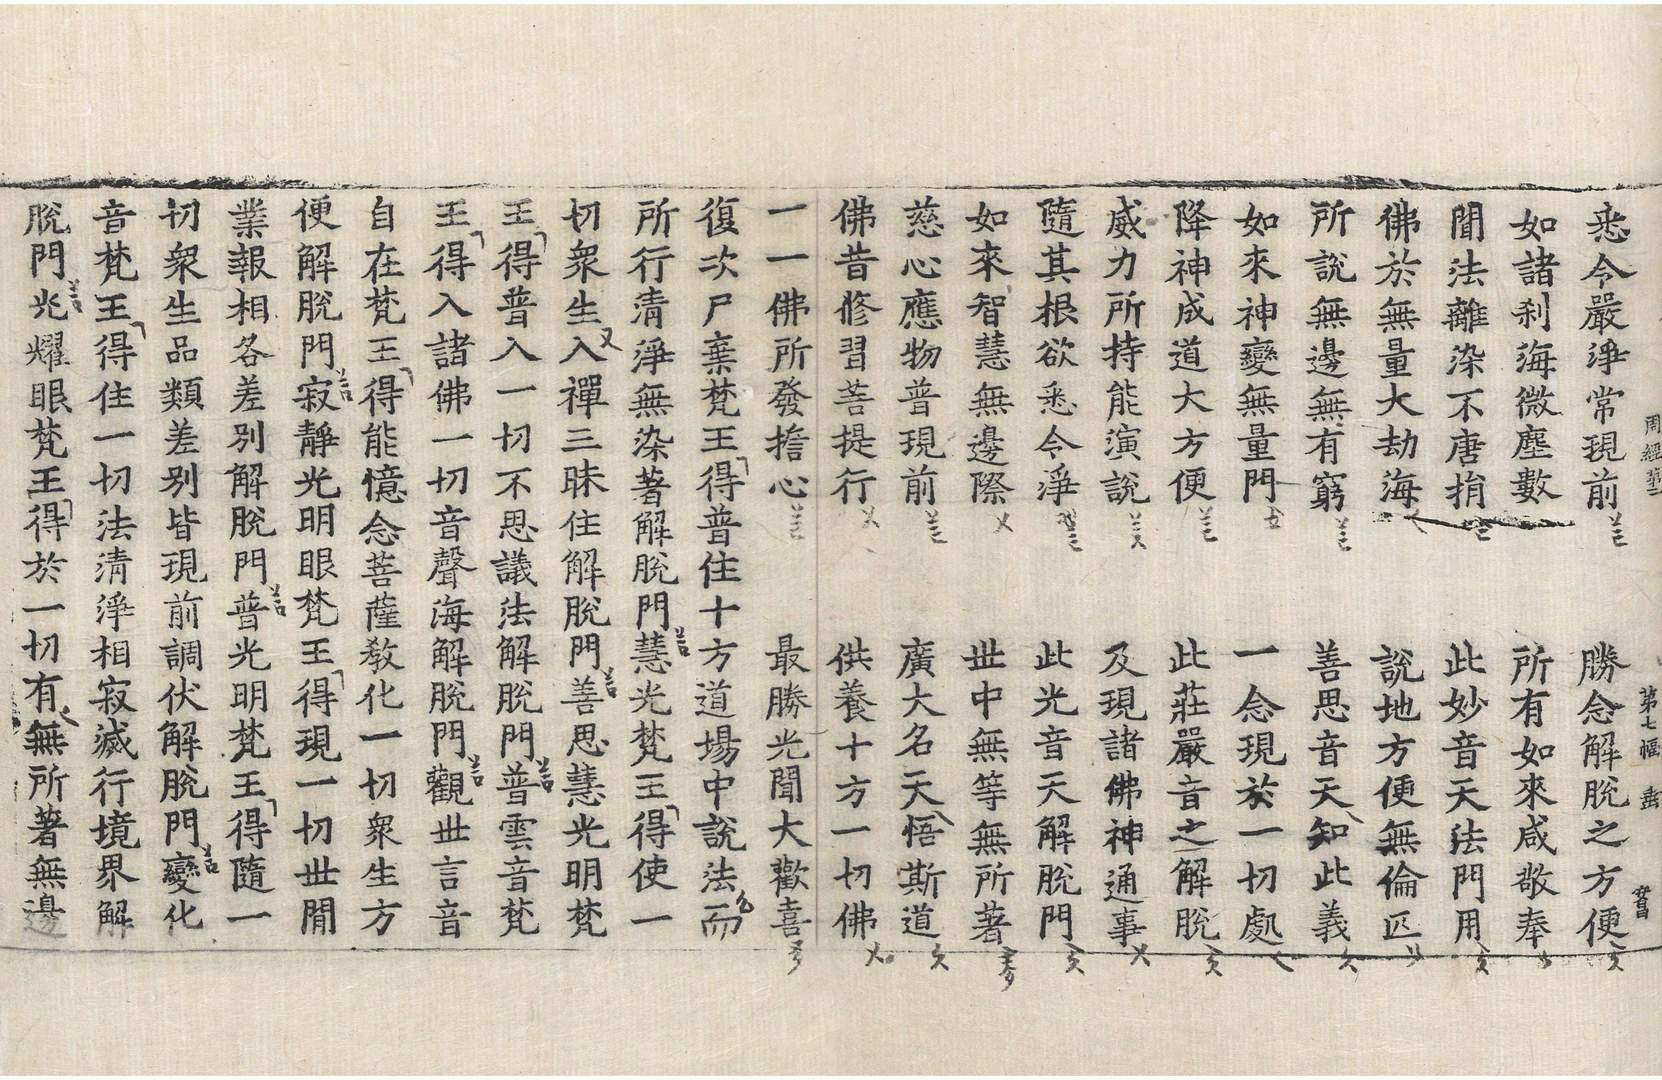 周經第二 第七幅
悉令嚴淨常現前 勝念解脫之方便
如諸刹海微塵數 所有如來咸敬奉
聞法離染不唐捐 此妙音天法門用
佛於無量大劫海 說地方便無倫匹
所說無邊無有窮 善思音天知此義
如來神變無量門 一念現於一切處
降神成道大方便 此莊嚴音之解脫
威力所持能演說 及現諸佛神通事
隨其根欲悉令淨 此光音天解脫門
如來智慧無邊際 世中無等無所著
慈心應物普現前 廣大名天悟斯道
佛昔修習菩提行 供養十方一切佛
一一佛所發擔心 最勝光聞大歡喜
復次尸棄梵王得普住十方道場中說法而
所行清淨無染著解脫門慧光梵王得使一
切衆生入禪三昧住解脫門善思慧光明梵
王得普入一切不思議法解脫門普雲音梵
王得入諸佛一切音聲海解脫門觀世言音
自在梵王得能憶念菩薩教化一切衆生方
便解脫門寂靜光明眼梵王得現一切世間
業報相各差別解脫門普光明梵王得隨一
切衆生品類差別皆現前調伏解脫門變化
音梵王得住一切法清淨相寂滅行境界解
脫門光耀眼梵王得於一切有無所著無邊